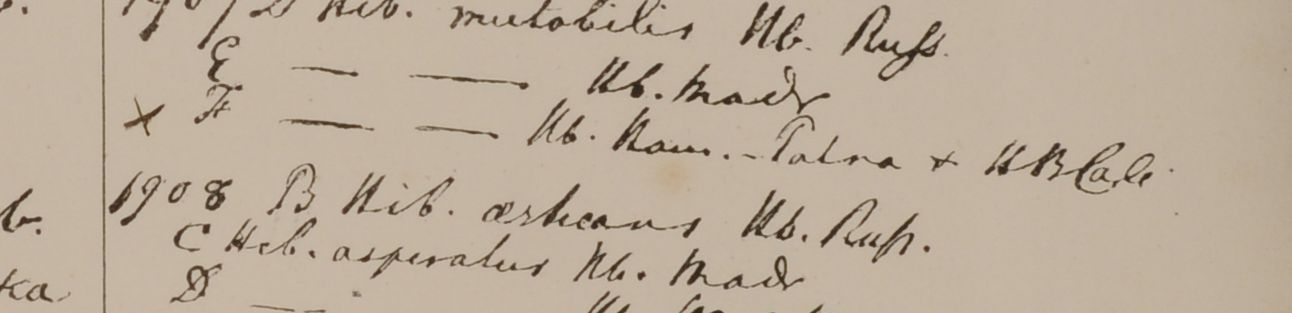 1907 D Hib. mutabilis Hb. Russ.
E — — Hb. Madr
× F — — Hb. Ham. - Patna + HB Calc.
b. 1908 B Hib. æstuans Hb. Russ.
C Hib. asperatus Hb. Madr
ka D —